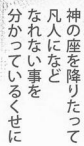 神の座を降りたって
凡人になど
なれない事を
分かっているくせに